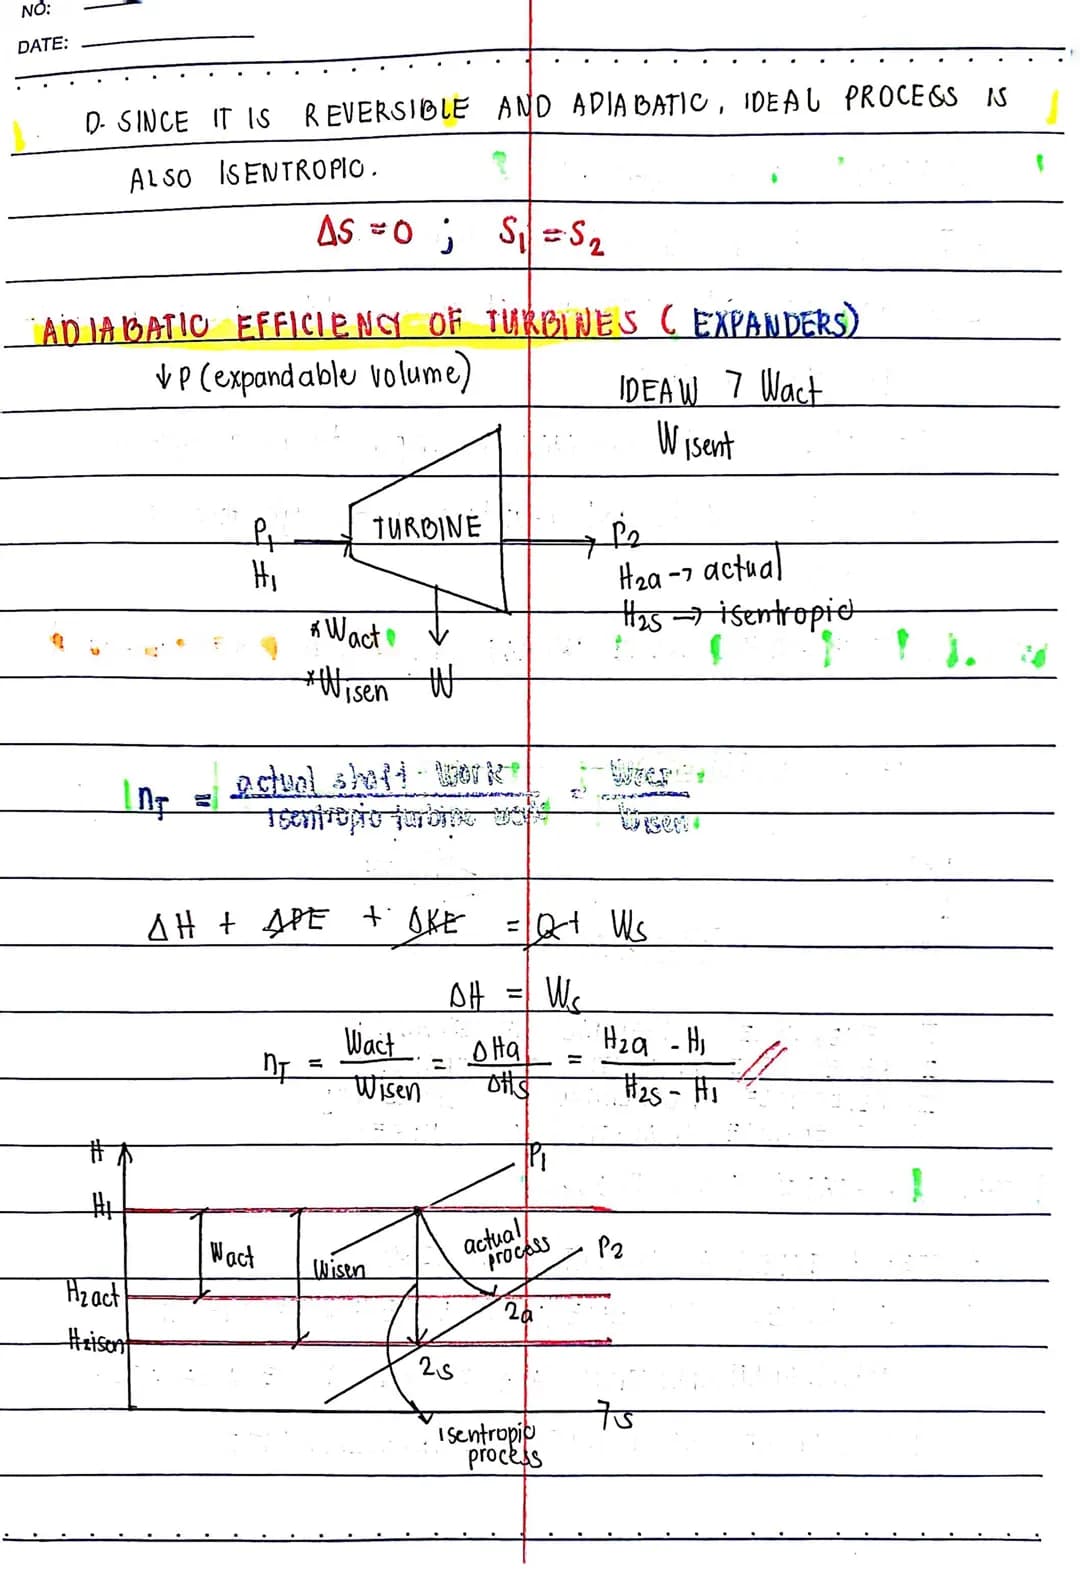 NO:
DATE:
D. SINCE IT IS REVERSIBLE AND ADIABATIC, IDEAL PROCESS IS
ALSO ISENTROPIC.
ΔS = 0 ; S1 = S2
ADIABATIC EFFICIENCY OF TURBINES (EXPANDERS)
↓P (expandable volume)
IDEAW > Wact
Wisent
TURBINE
P1
H1
P2
H2a → actual
H2s → isentropic
*Wact
*Wisen W
nT = actual shaft work / isentropic turbine work = Wact / Wisen
ΔH + ΔPE + ΔKE = Q + Ws
ΔH = Ws
nT = Wact / Wisen = ΔHa / ΔHs = H2a - H1 / H2s - H1
H
P1
H1
Wact
Wisen
actual process
P2
H2act
2a
H2isen
2s
S
isentropic
process